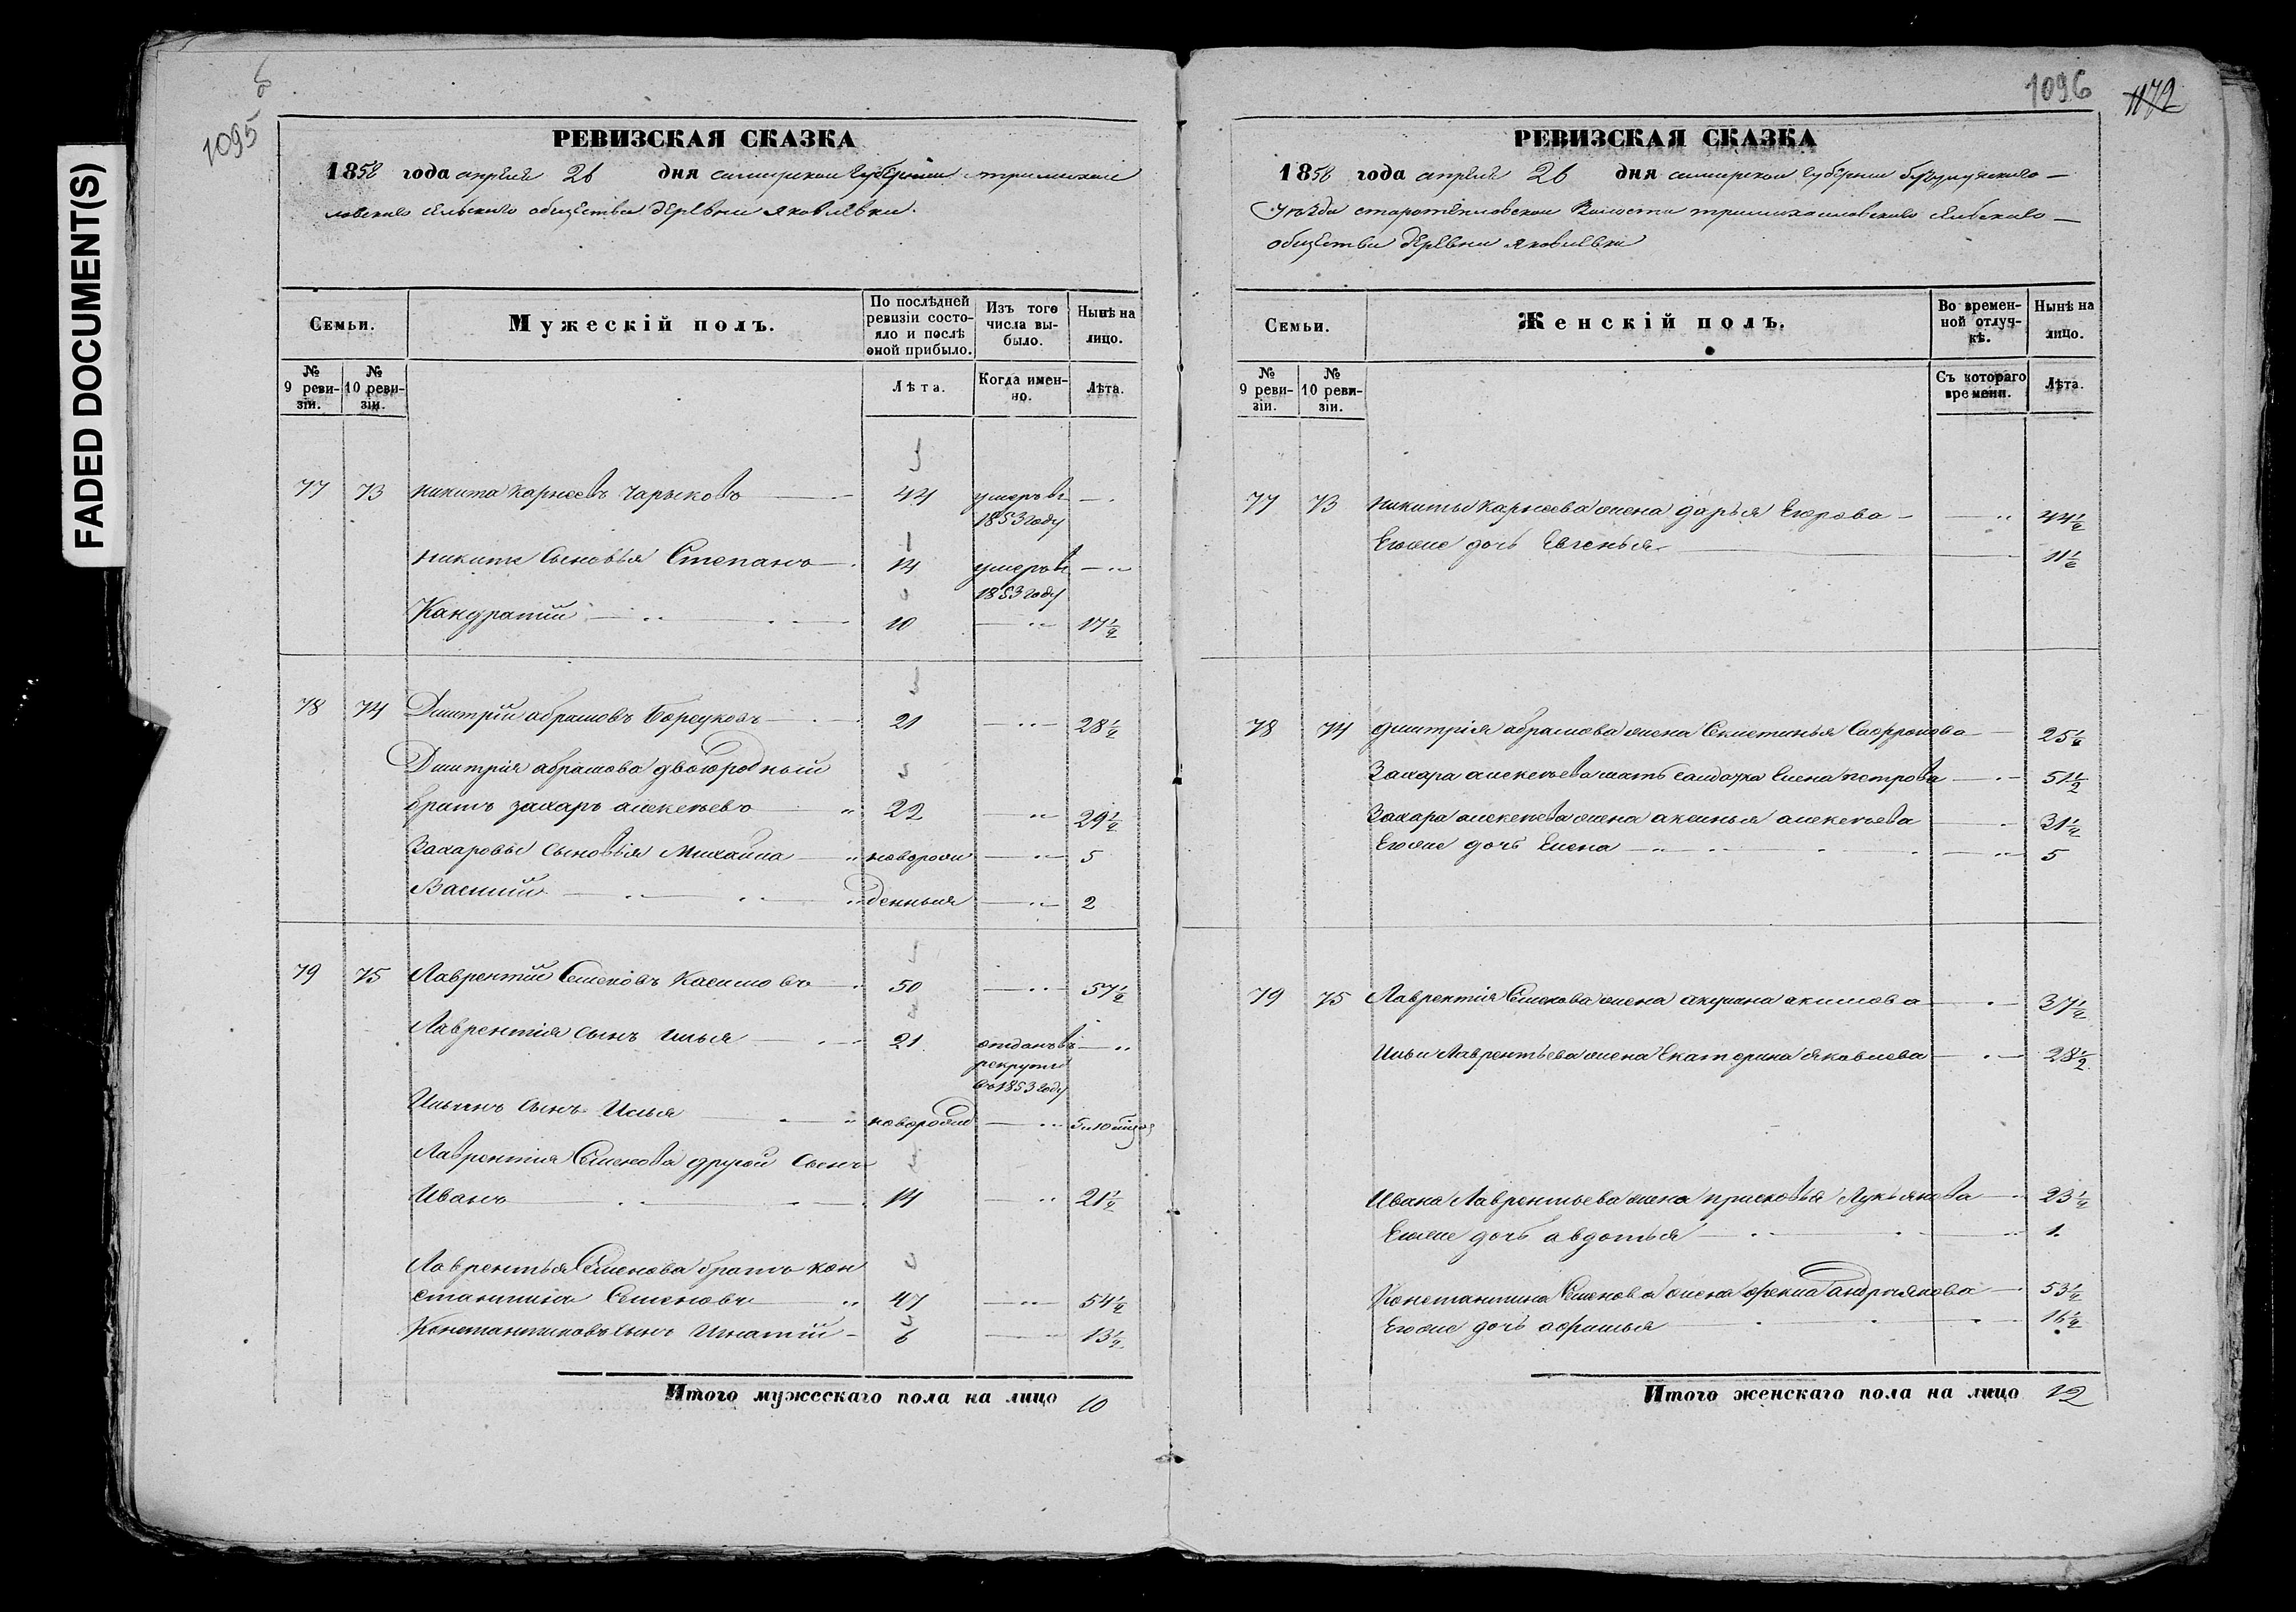 FADED DOCUMENT(S)
1095
об
РЕВИЗСКАЯ СКАЗКА
1858 года апреля 26 дня самирской губернии тримихай
ловскаго сельскаго общества деревни яковлевки.
Семьи.
Мужескій полъ.
По послѣдней ревизіи состояло и послѣ оной прибыло.
Изъ того числа выбыло.
Нынѣ на лицо.
№ 9 ревизіи.
№ 10 ревизіи.
Лѣта.
Когда именно.
Лѣта.
77 73 никита карнеевъ Чарыковъ 44 умеръ въ
1853 году
никиты Сыновья Степанъ 14 умеръ въ
1853 году
Кандратій 10 17½
78 74 Дмитрій абрамовъ 21 28½
Дмитрія абрамова двоюродный
братъ захаръ алексеевъ 22 29½
Захаровы Сыновья Михайла новорож 5
Василий денныя 2
79 75 Лаврентій Семеновъ Касимовъ 50 57½
Лаврентія сынъ илья 21 отданъ въ
рекруты
въ 1853 году
Ильинъ сынъ Илья новорожд
Лаврентия Семенова другой Сынъ
Иванъ 14 21½
Лаврентья Семенова братъ кон
стантинъ Семеновъ 47 54½
Константиновъ Сынъ Игнатій 6 13½
Итого мужескаго пола на лицо 10
1096
1172
РЕВИЗСКАЯ СКАЗКА
1858 года апреля 26 дня самирской губернии
Уезда Волости тримихаиловскаго сельскаго
общества деревни яковлевки
Семьи.
Женскій полъ.
Во временной отлучкѣ.
Нынѣ на лицо.
№ 9 ревизіи.
№ 10 ревизіи.
Съ котораго времени.
Лѣта.
77 73 никиты карнеева жена дарья Егорова 44½
Егоже дочь Евгенья 11½
78 74 дмитрія абрамова жена Сафронова 25½
Захара алексеева мать салдатка Елена петрова 51½
Захара алексеева жена аксинья алексеева 31½
Егоже дочь Елена 5
79 75 Лаврентія Семенова жена акулина акимова 37½
Ильи Лаврентьева жена Екатерина яковлева 28½
Ивана Лаврентьева жена прасковья Лукьянова 23½
Егоже дочь авдотья 1.
Константина Семенова жена фекла андриянова 53½
Егоже дочь афимья 16½
Итого женскаго пола на лицо 12